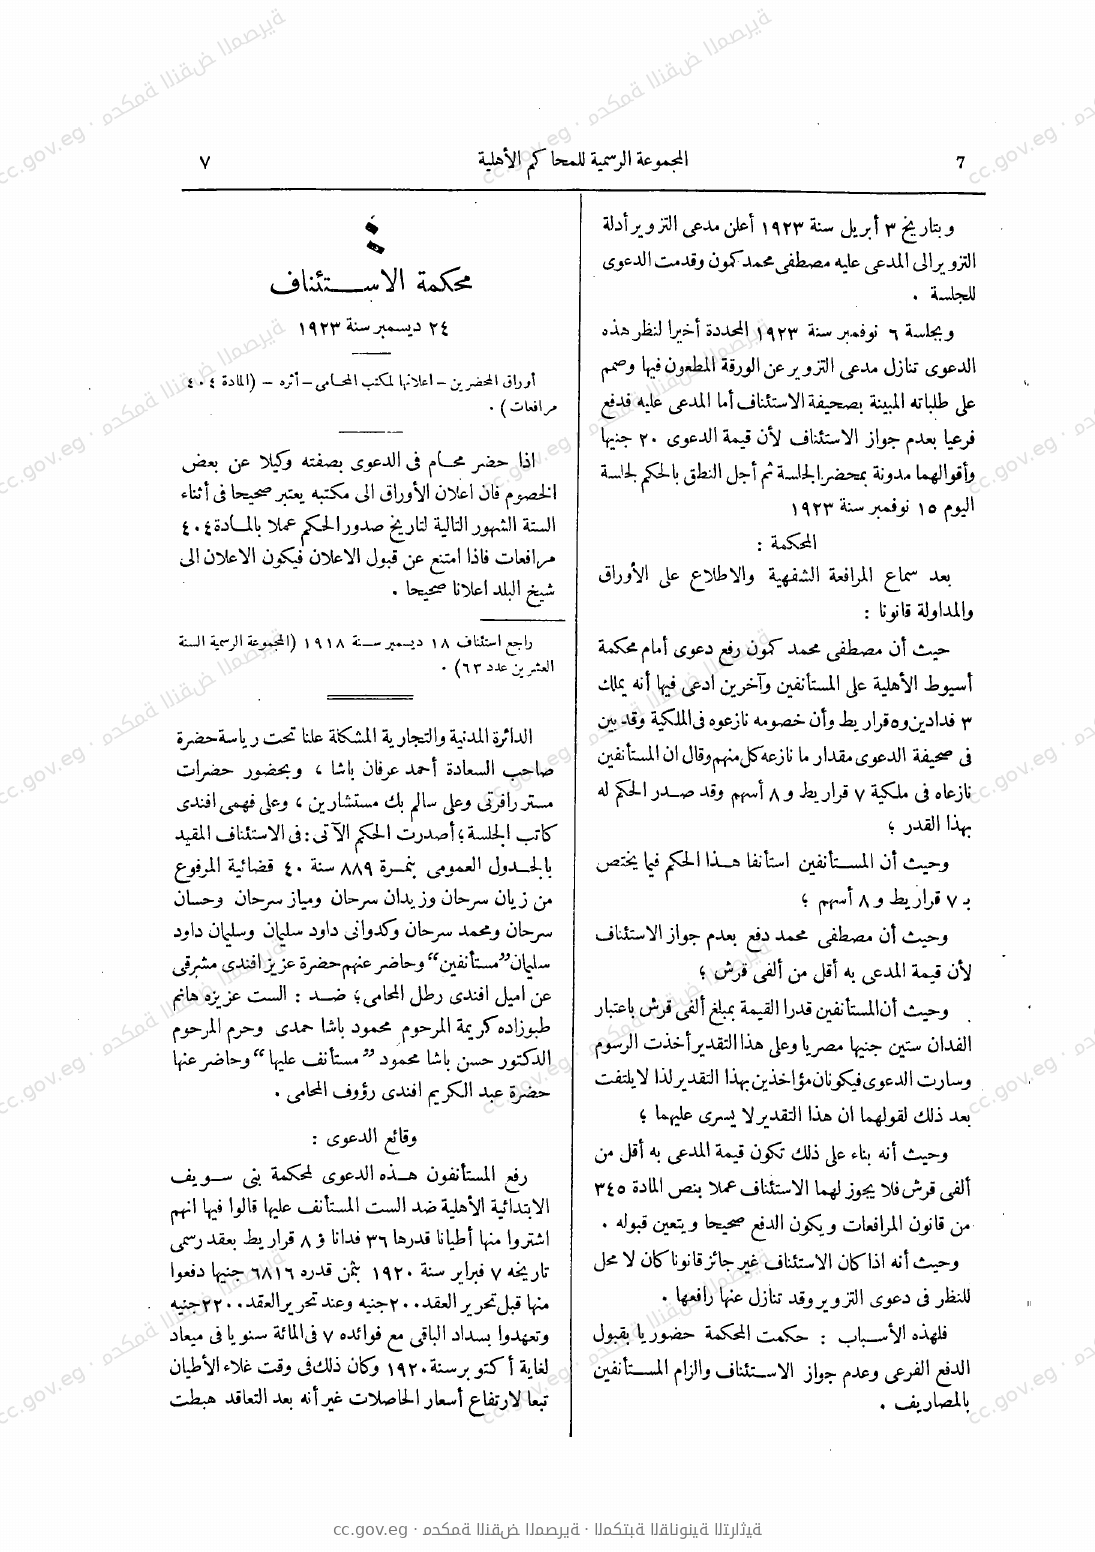 7
المجموعة الرسمية للمحاكم الأهلية
٧
وبتاريخ ٣ أبريل سنة ١٩٢٣ أعلن مدعى التزوير أدلة
التزوير الى المدعى عليه مصطفى محمد كمون وقدمت الدعوى
للجلسة .
وبجلسة ٦ نوفمبر سنة ١٩٢٣ المحددة أخيرا لنظر هذه
الدعوى تنازل مدعى التزوير عن الورقة المطعون فيها وصمم
على طلباته المبينة بصحيفة الاستئناف أما المدعى عليه فدفع
فرعيا بعدم جواز الاستئناف لأن قيمة الدعوى ٢٠ جنيها
وأقوالهما مدونة بمحضر الجلسة ثم أجل النطق بالحكم لجلسة
اليوم ١٥ نوفمبر سنة ١٩٢٣
المحكمة :
بعد سماع المرافعة الشفهية والاطلاع على الأوراق
والمداولة قانونا :
حيث أن مصطفى محمد كمون رفع دعوى أمام محكمة
أسيوط الأهلية على المستأنفين وآخرين ادعى فيها أنه يملك
٣ فدادين و٥ قراريط وأن خصومه نازعوه فى الملكية وقد بين
فى صحيفة الدعوى مقدار ما نازعه كل منهم وقال ان المستأنفين
نازعاه فى ملكية ٧ قراريط و ٨ أسهم وقد صدر الحكم له
بهذا القدر ؛
وحيث أن المستأنفين استأنفا هذا الحكم فيما يختص
بـ ٧ قراريط و ٨ أسهم ؛
وحيث أن مصطفى محمد دفع بعدم جواز الاستئناف
لأن قيمة المدعى به أقل من ألفى قرش ؛
وحيث أن المستأنفين قدرا القيمة بمبلغ ألفى قرش باعتبار
الفدان ستين جنيها مصريا وعلى هذا التقدير أخذت الرسوم
وسارت الدعوى فيكونان مؤاخذين بهذا التقدير لذا لا يلتفت
بعد ذلك لقولهما ان هذا التقدير لا يسرى عليهما ؛
وحيث أنه بناء على ذلك تكون قيمة المدعى به أقل من
ألفى قرش فلا يجوز لهما الاستئناف عملا بنص المادة ٣٤٥
من قانون المرافعات ويكون الدفع صحيحا ويتعين قبوله .
وحيث أنه اذا كان الاستئناف غير جائز قانونا كان لا محل
للنظر فى دعوى التزوير وقد تنازل عنها رافعها .
فلهذه الأسباب : حكمت المحكمة حضوريا بقبول
الدفع الفرعى وعدم جواز الاستئناف والزام المستأنفين
بالمصاريف .
٤
محكمة الاستئناف
٢٤ ديسمبر سنة ١٩٢٣
أوراق المحضرين – اعلانها لمكتب المحامى – أثره – (المادة ٤٠٤
مرافعات) .
اذا حضر محام فى الدعوى بصفته وكيلا عن بعض
الخصوم فان اعلان الأوراق الى مكتبه يعتبر صحيحا فى أثناء
الستة الشهور التالية لتاريخ صدور الحكم عملا بالمادة ٤٠٤
مرافعات فاذا امتنع عن قبول الاعلان فيكون الاعلان الى
شيخ البلد اعلانا صحيحا .
راجع استئناف ١٨ ديسمبر سنة ١٩١٨ (المجموعة الرسمية السنة
العشرين عدد ٦٣) .
الدائرة المدنية والتجارية المشكلة علنا تحت رياسة حضرة
صاحب السعادة أحمد عرفان باشا ، وبحضور حضرات
مستر رافرتى وعلى سالم بك مستشارين ، وعلى فهمى افندى
كاتب الجلسة ؛ أصدرت الحكم الآتى : فى الاستئناف المقيد
بالجدول العمومى بنمرة ٨٨٩ سنة ٤٠ قضائية المرفوع
من زيان سرحان وزيدان سرحان ومياز سرحان وحسان
سرحان ومحمد سرحان وكدوانى داود سليمان وسليمان داود
سليمان ”مستأنفين“ وحاضر عنهم حضرة عزيز افندى مشرقى
عن اميل افندى رطل المحامى ؛ ضد : الست عزيزه هانم
طبوزاده كريمة المرحوم محمود باشا حمدى وحرم المرحوم
الدكتور حسن باشا محمود ” مستأنف عليها “ وحاضر عنها
حضرة عبد الكريم افندى رؤوف المحامى .
وقائع الدعوى :
رفع المستأنفون هذه الدعوى لمحكمة بنى سويف
الابتدائية الأهلية ضد الست المستأنف عليها قالوا فيها انهم
اشتروا منها أطيانا قدرها ٣٦ فدانا و ٨ قراريط بعقد رسمى
تاريخه ٧ فبراير سنة ١٩٢٠ بثمن قدره ٦٨١٦ جنيها دفعوا
منها قبل تحرير العقد ٢٠٠ جنيه وعند تحرير العقد ٢٢٠٠ جنيه
وتعهدوا بسداد الباقى مع فوائده ٧ فى المائة سنويا فى ميعاد
لغاية أكتوبر سنة ١٩٢٠ وكان ذلك فى وقت غلاء الأطيان
تبعا لارتفاع أسعار الحاصلات غير أنه بعد التعاقد هبطت
cc.gov.eg · محكمة النقض المصرية · المكتبة القانونية التراثية